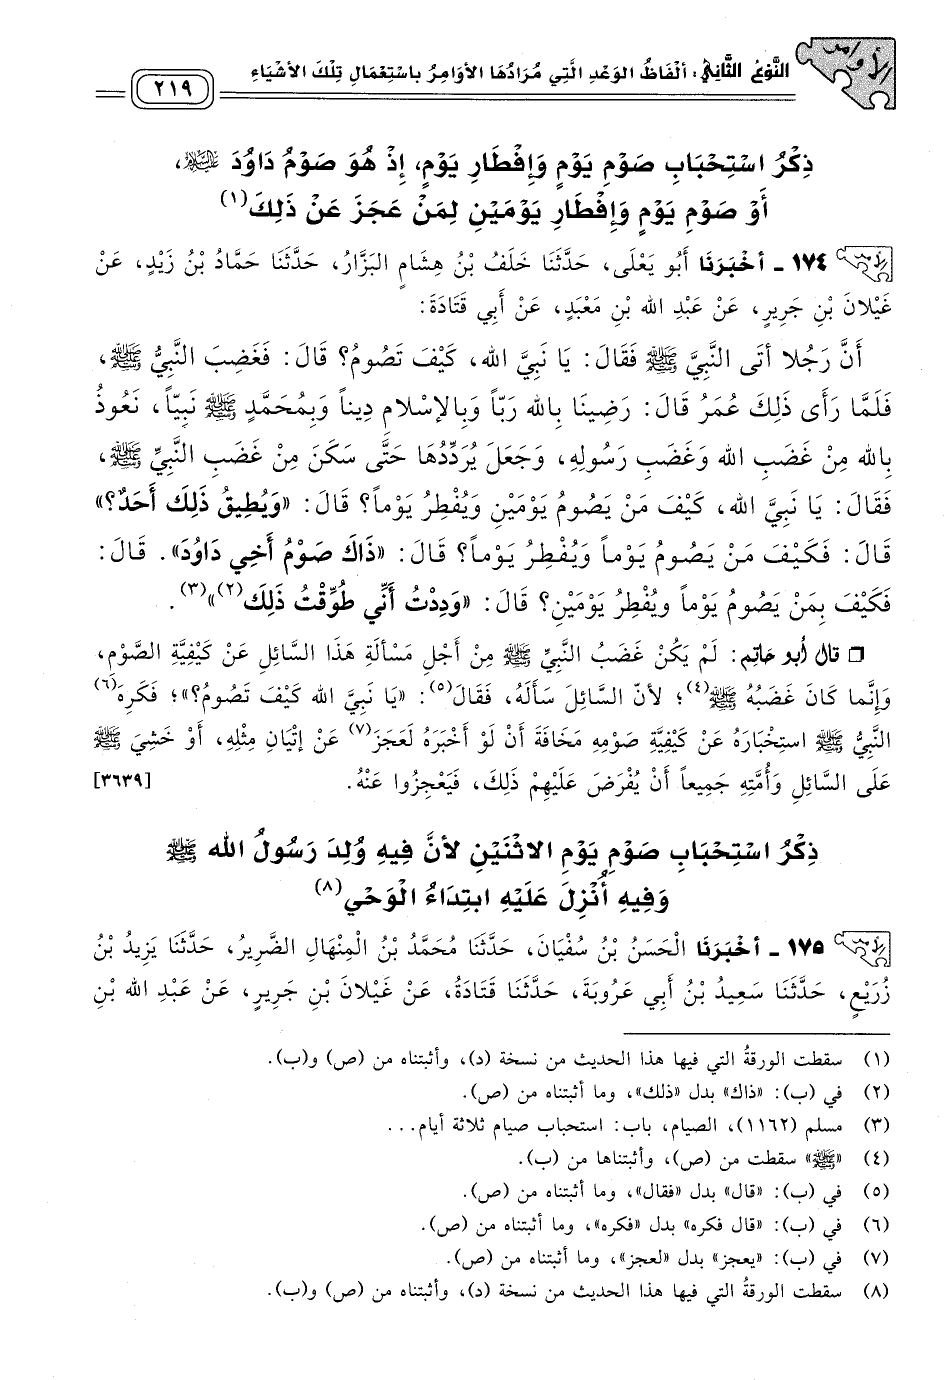 الأوامر
النَّوْعُ الثَّانِي: ألْفَاظُ الوَعْدِ الَّتِي مُرَادُهَا الأوَامِرُ بِاسْتِعْمَالِ تِلْكَ الأشْيَاءِ
٢١٩
ذِكْرُ اسْتِحْبَابِ صَوْمِ يَوْمٍ وَإِفْطَارِ يَوْمٍ، إِذْ هُوَ صَوْمُ دَاوُدَ عليه السلام،
أَوْ صَوْمِ يَوْمٍ وَإِفْطَارِ يَوْمَيْنِ لِمَنْ عَجَزَ عَنْ ذَلِكَ(١)
١٧٤ - أخْبَرَنَا أَبُو يَعْلَى، حَدَّثَنَا خَلَفُ بْنُ هِشَامٍ البَزَّارُ، حَدَّثَنَا حَمَّادُ بْنُ زَيْدٍ، عَنْ
غَيْلانَ بْنِ جَرِيرٍ، عَنْ عَبْدِ الله بْنِ مَعْبَدٍ، عَنْ أَبِي قَتَادَةَ:
أَنَّ رَجُلا أتَى النَّبِيَّ ﷺ فَقَالَ: يَا نَبِيَّ الله، كَيْفَ تَصُومُ؟ قَالَ: فَغَضِبَ النَّبِيُّ ﷺ،
فَلَمَّا رَأَى ذَلِكَ عُمَرُ قَالَ: رَضِينَا بِالله رَبّاً وَبِالإسْلامِ دِيناً وَبِمُحَمَّدٍ ﷺ نَبِيّاً، نَعُوذُ
بِالله مِنْ غَضَبِ الله وَغَضَبِ رَسُولِهِ، وَجَعَلَ يُرَدِّدُهَا حَتَّى سَكَنَ مِنْ غَضَبِ النَّبِيِّ ﷺ،
فَقَالَ: يَا نَبِيَّ الله، كَيْفَ مَنْ يَصُومُ يَوْمَيْنِ وَيُفْطِرُ يَوْماً؟ قَالَ: «وَيُطِيقُ ذَلِكَ أَحَدٌ؟»
قَالَ: فَكَيْفَ مَنْ يَصُومُ يَوْماً وَيُفْطِرُ يَوْماً؟ قَالَ: «ذَاكَ صَوْمُ أَخِي دَاوُدَ». قَالَ:
فَكَيْفَ بِمَنْ يَصُومُ يَوْماً ويُفْطِرُ يَوْمَيْنِ؟ قَالَ: «وَدِدْتُ أَنِّي طُوِّقْتُ ذَلِكَ(٢)»(٣).
❒ قال أبو حاتم: لَمْ يَكُنْ غَضَبُ النَّبِيِّ ﷺ مِنْ أَجْلِ مَسْألَةِ هَذَا السَّائِلِ عَنْ كَيْفِيَّةِ الصَّوْمِ،
وَإِنَّما كَانَ غَضَبُهُ ﷺ(٤)؛ لأنّ السَّائِلَ سَأَلَهُ، فَقَالَ(٥): «يَا نَبِيَّ الله كَيْفَ تَصُومُ؟»؛ فَكَرِهَ(٦)
النَّبِيُّ ﷺ اسْتِخْبَارَهُ عَنْ كَيْفِيَّةِ صَوْمِهِ مَخَافَةَ أَنْ لَوْ أَخْبَرَهُ لَعَجَزَ(٧) عَنْ إتْيَانِ مِثْلِهِ، أَوْ خَشِيَ ﷺ
عَلَى السَّائِلِ وَأُمَّتِهِ جَمِيعاً أَنْ يُفْرَضَ عَلَيْهِمْ ذَلِكَ، فَيَعْجِزُوا عَنْهُ. [٣٦٣٩]
ذِكْرُ اسْتِحْبَابِ صَوْمِ يَوْمِ الاثْنَيْنِ لأنَّ فِيهِ وُلِدَ رَسُولُ الله ﷺ
وَفِيهِ أُنْزِلَ عَلَيْهِ ابتِدَاءُ الْوَحْيِ(٨)
١٧٥ - أخْبَرَنَا الْحَسَنُ بْنُ سُفْيَانَ، حَدَّثَنَا مُحَمَّدُ بْنُ الْمِنْهَالِ الضَّرِيرُ، حَدَّثَنَا يَزِيدُ بْنُ
زُرَيْعٍ، حَدَّثَنَا سَعِيدُ بْنُ أَبِي عَرُوبَةَ، حَدَّثَنَا قَتَادَةُ، عَنْ غَيْلانَ بْنِ جَرِيرٍ، عَنْ عَبْدِ الله بْنِ
(١) سقطت الورقةُ التي فيها هذا الحديث من نسخة (د)، وأثبتناه من (ص) و(ب).
(٢) في (ب): «ذاك» بدل «ذلك»، وما أثبتناه من (ص).
(٣) مسلم (١١٦٢)، الصيام، باب: استحباب صيام ثلاثة أيام...
(٤) «ﷺ» سقطت من (ص)، وأثبتناها من (ب).
(٥) في (ب): «قال» بدل «فقال»، وما أثبتناه من (ص).
(٦) في (ب): «قال فكره» بدل «فكره»، وما أثبتناه من (ص).
(٧) في (ب): «يعجز» بدل «لعجز»، وما أثبتناه من (ص).
(٨) سقطت الورقةُ التي فيها هذا الحديث من نسخة (د)، وأثبتناه من (ص) و(ب).